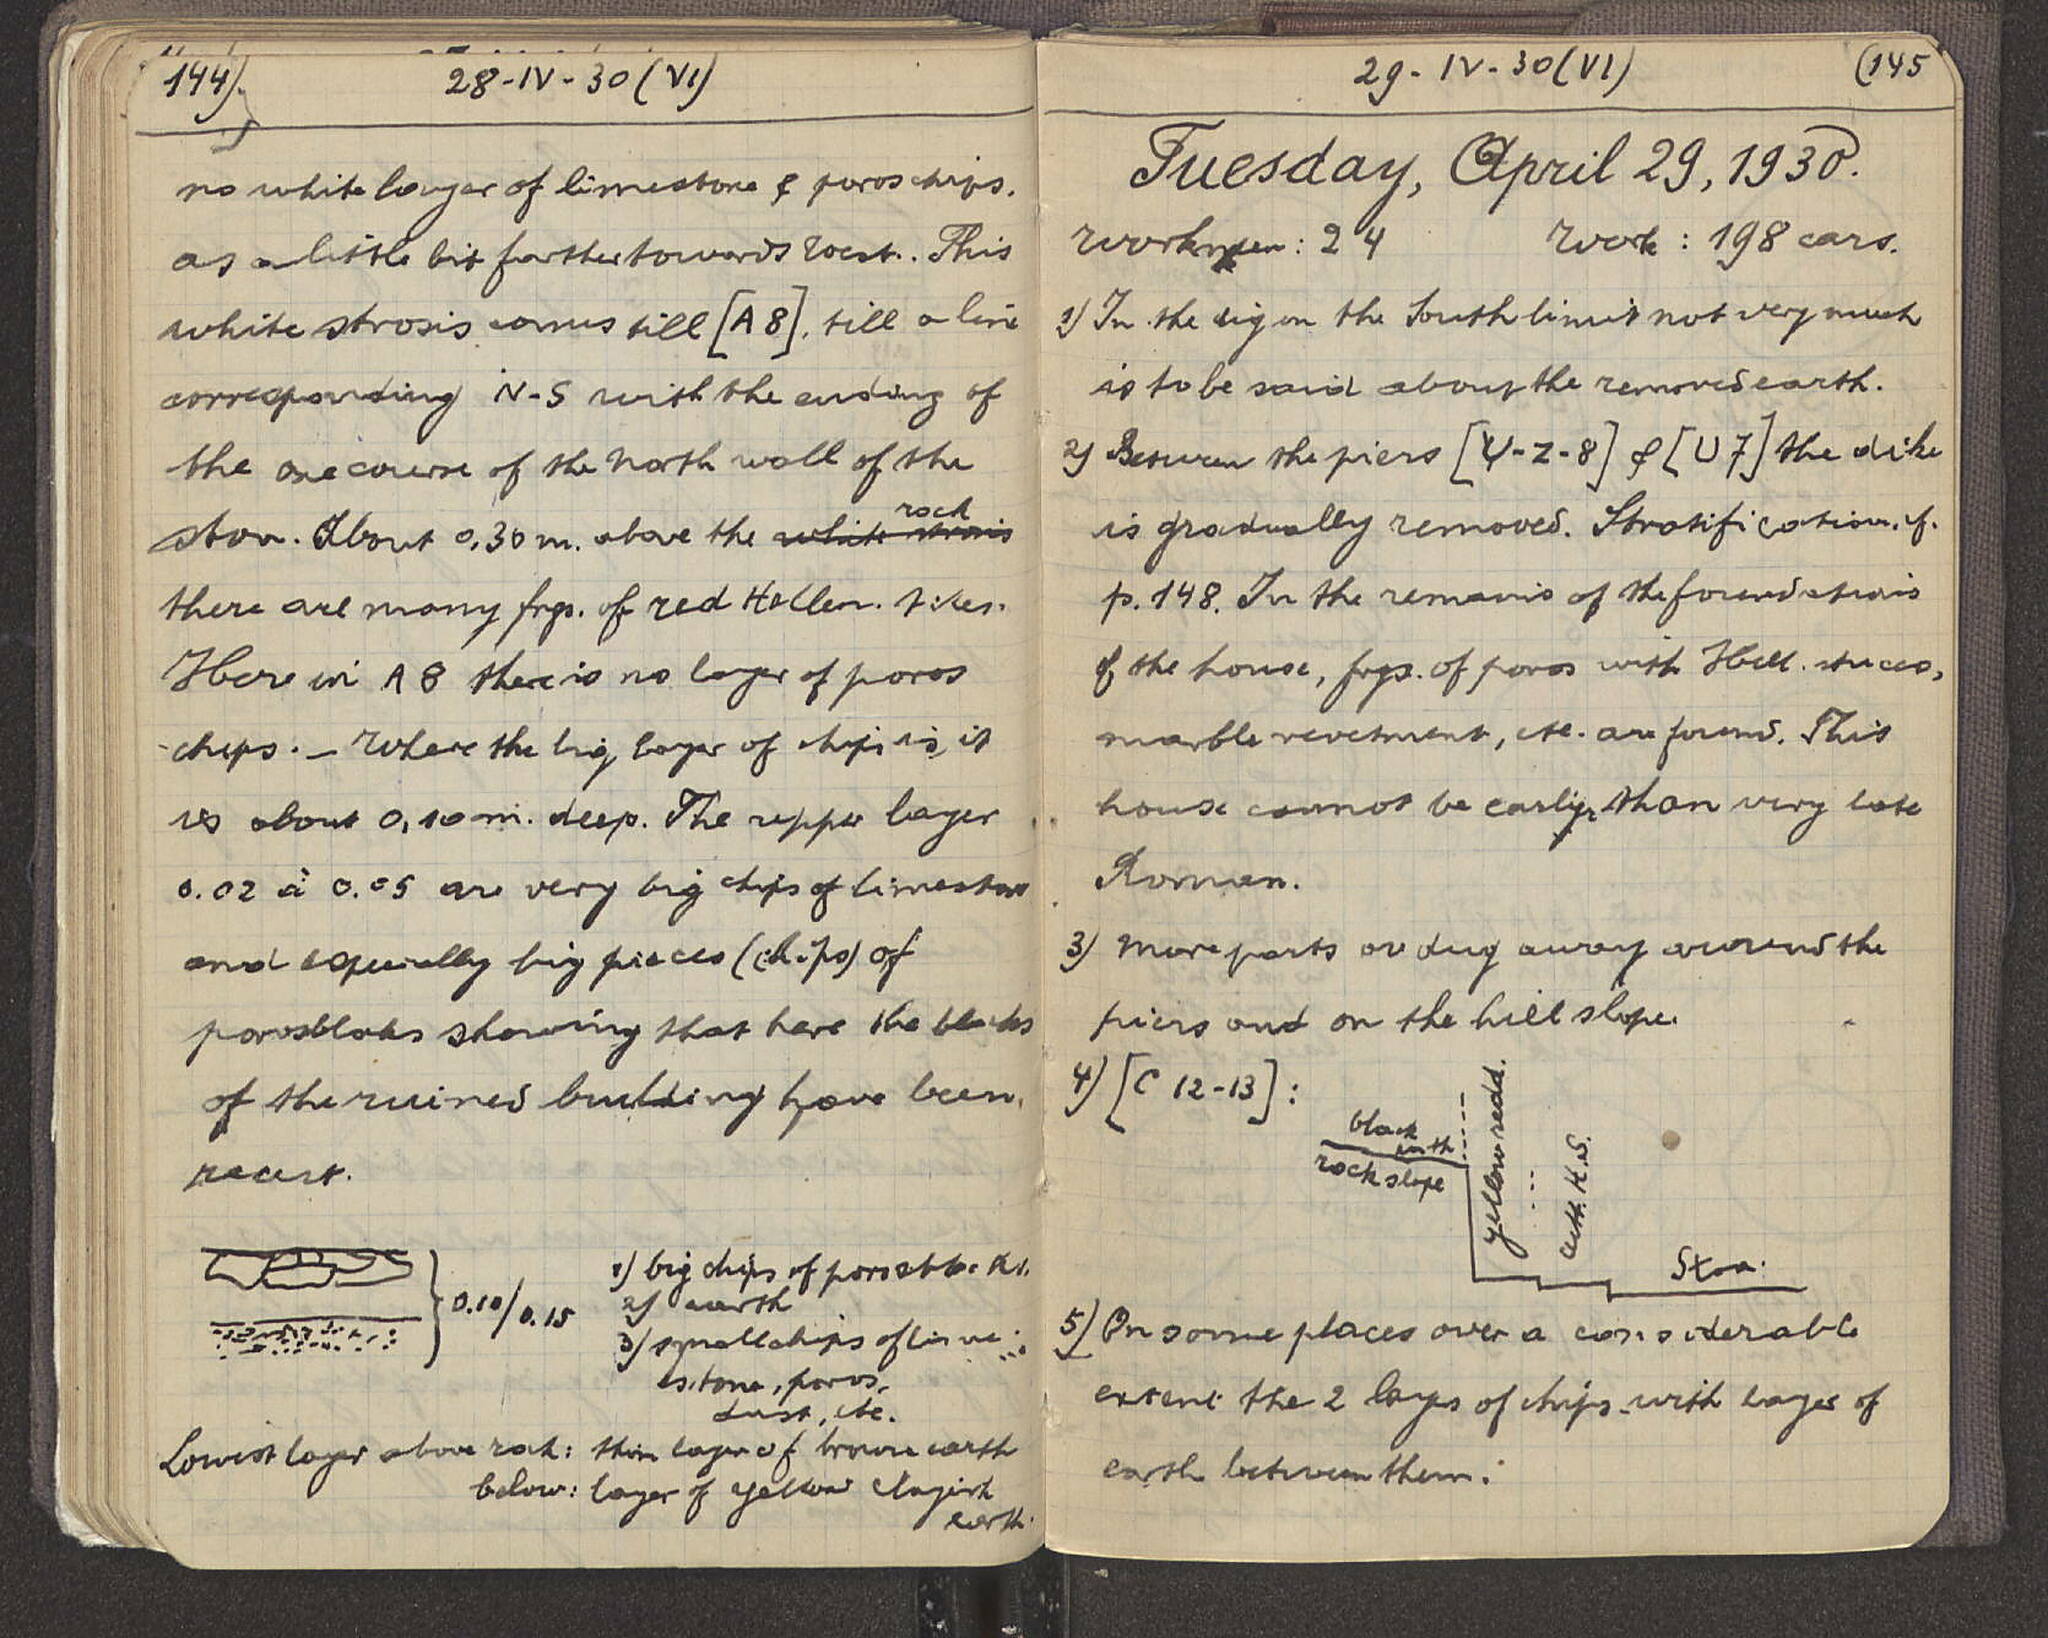 144)
28-IV-30 (VI)
no white layer of limestone & poros chips.
as a little bit farther towards West. This
white strosis comes till [A 8], till a line
corresponding N-S with the ending of
the one course of the North wall of the
stoa. About 0,30 m. above the white strosis rock
there are many frgs. of red Hellen. tiles.
Here in A 8 there is no layer of poros
chips. - Where the big layer of chips is, it
is about 0,10 m. deep. The upper layer
0.02 à 0.05 are very big chips of limestone
and especially big pieces (chips) of
porosbloks showing that here the blocks
of the ruined building have been
recut.
0.10/0.15
1) big chips of poros
2) earth
3) small chips of lime
stone, poros,
dust, etc.
Lowest layer above rock: thin layer of brown earth
below: layer of yellow clayish
earth.
29-IV-30 (VI)
(145
Tuesday, April 29, 1930.
Workmen: 24 Work: 198 cars.
1) In the dig on the South limit not very much
is to be said about the removed earth.
2) Between the piers [Ψ-Z-8] & [U 7] the dike
is gradually removed. Stratification cf.
p. 148. In the remains of the foundations
of the house, frgs. of poros with Hell. stucco,
marble revetment, etc. are found. This
house cannot be earlier than very late
Roman.
3) More parts ar dug away around the
piers and on the hill slope.
4) [C 12-13]:
black
earth
rock slope
yellow redd.
Stoa.
5) On some places over a considerable
extent the 2 layers of chips with layer of
earth between them: